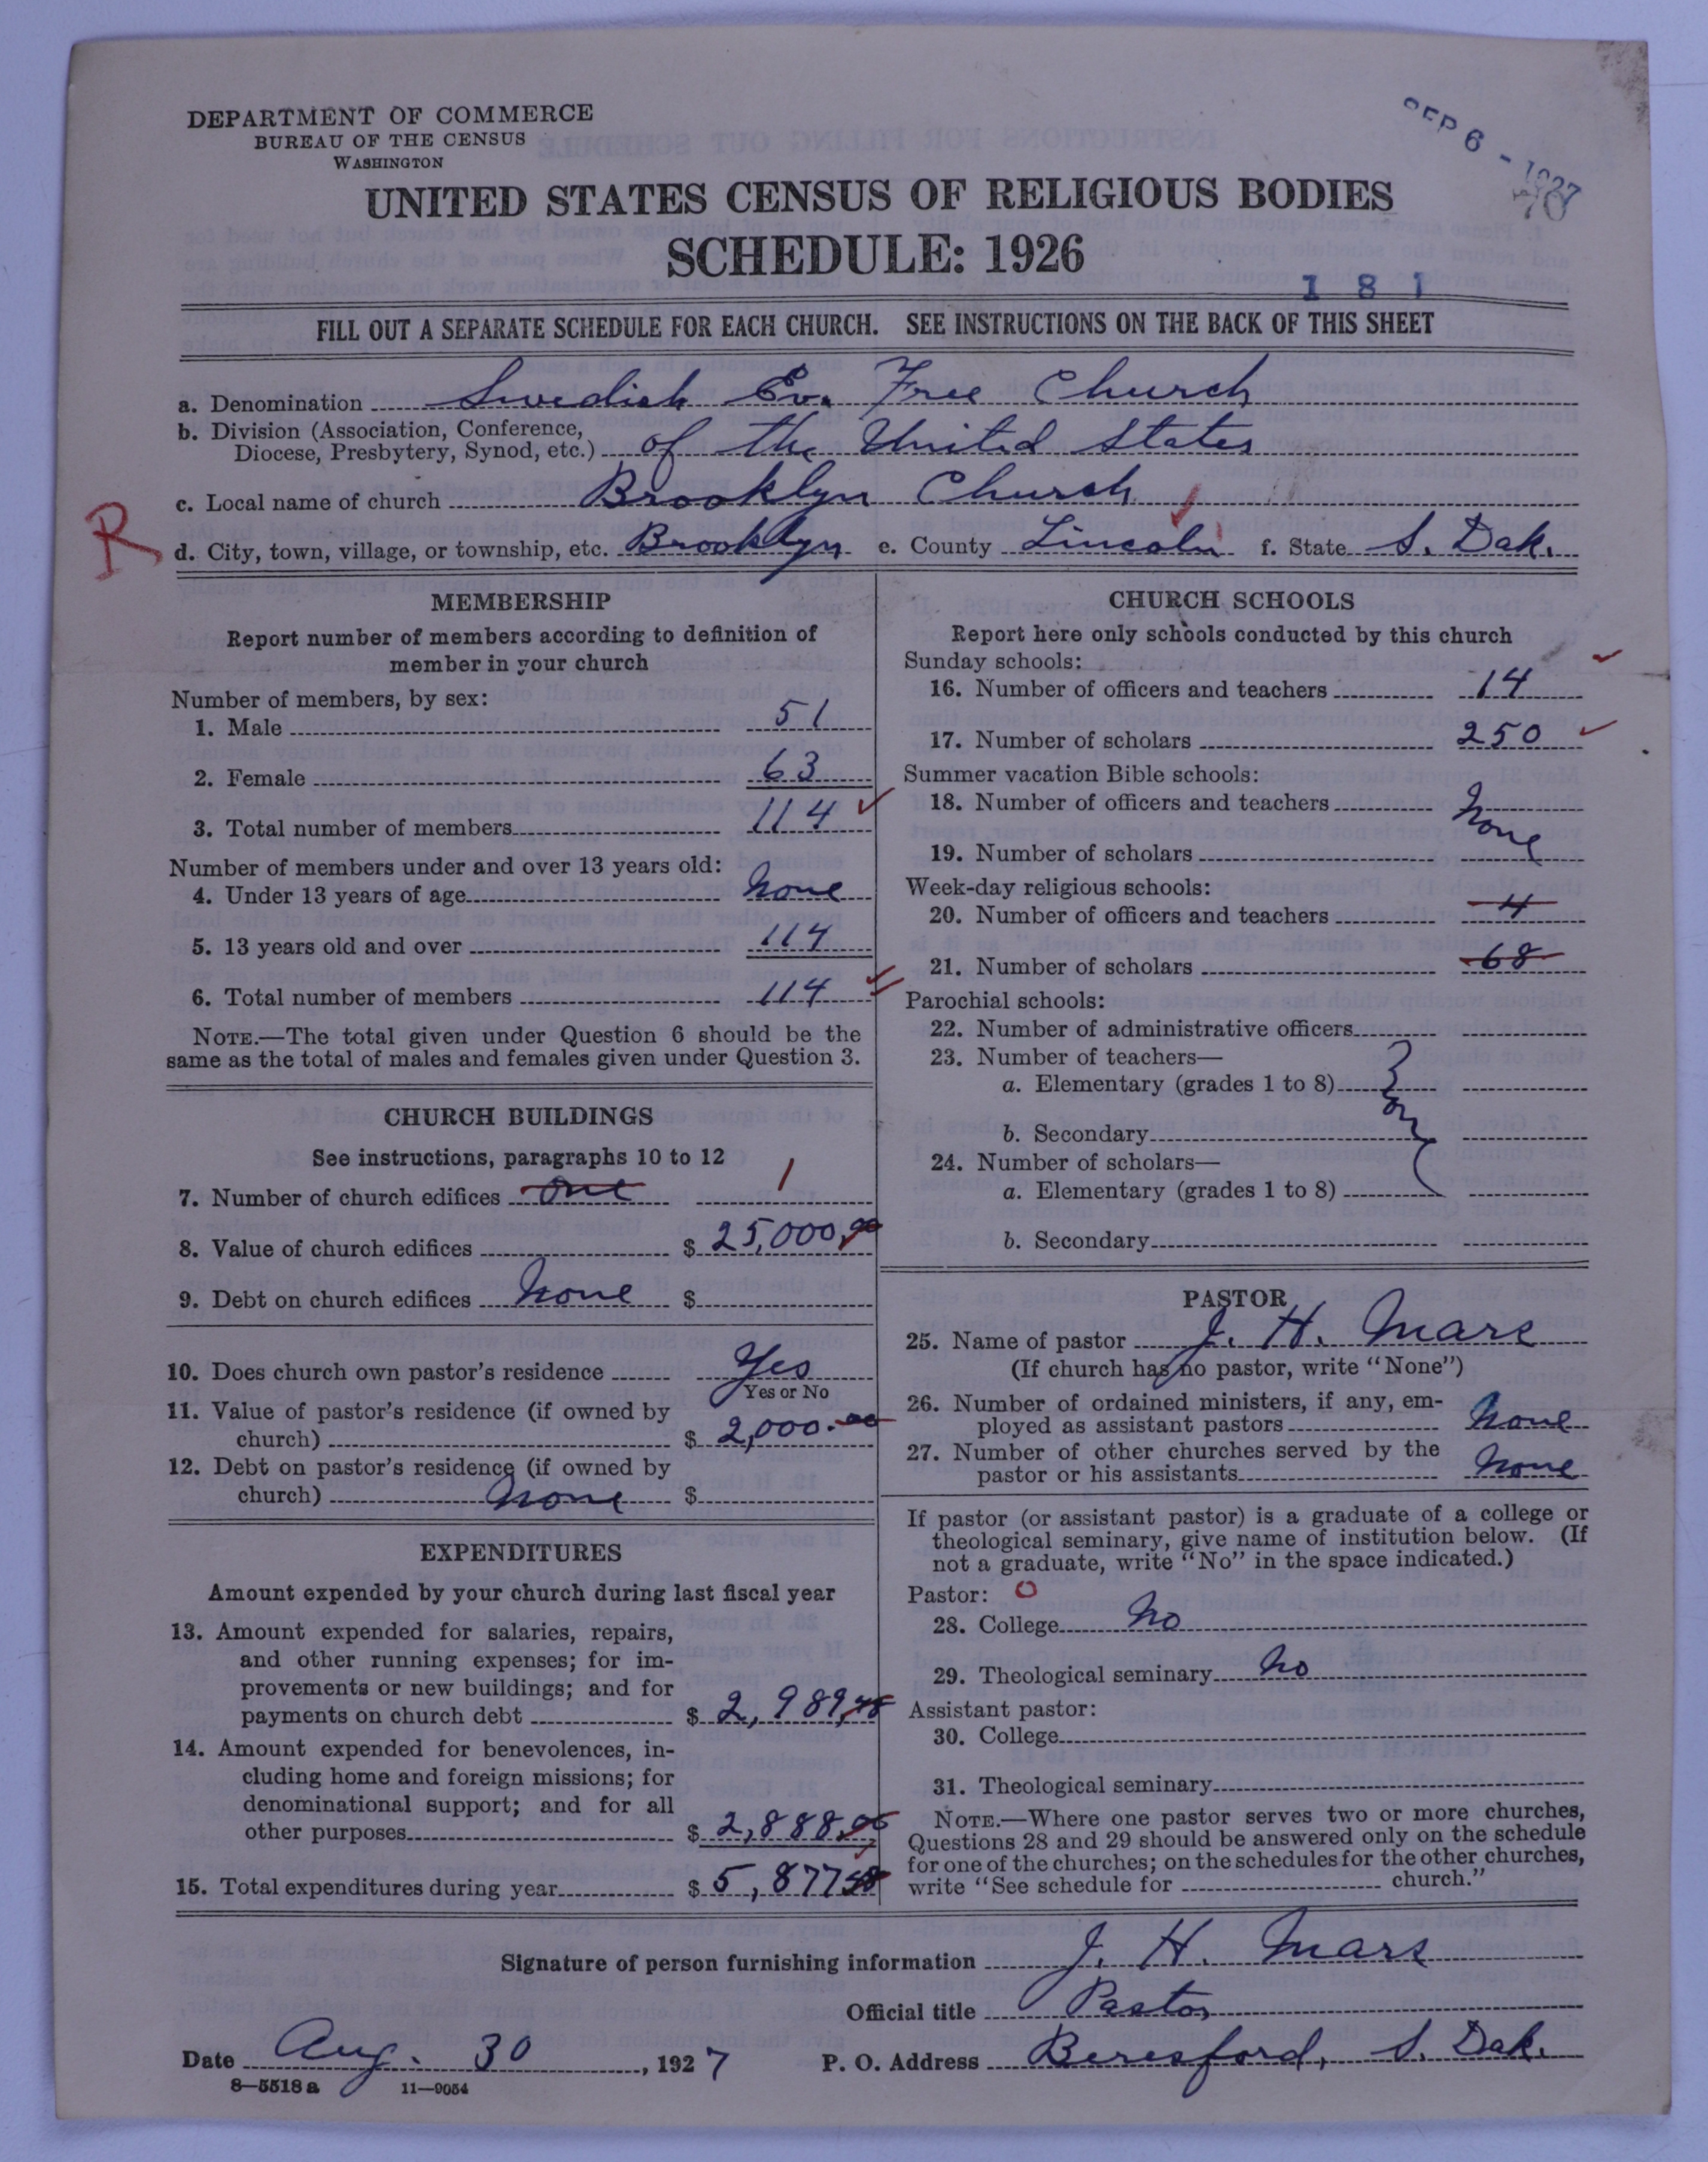 DEPARTMENT OF COMMERCE
BUREAU OF THE CENSUS
WASHINGTON
SEP 6 - 1927
70
UNITED STATES CENSUS OF RELIGIOUS BODIES
SCHEDULE: 1926
1 8 1
FILL OUT A SEPARATE SCHEDULE FOR EACH CHURCH. SEE INSTRUCTIONS ON THE BACK OF THIS SHEET
a. Denomination Swedish Ev. Free Church
b. Division (Association, Conference,
Diocese, Presbytery, Synod, etc.) of the United States
c. Local name of church Brooklyn Church
R
d. City, town, village, or township, etc. Brooklyn e. County Lincoln f. State S. Dak.
MEMBERSHIP
Report number of members according to definition of
member in your church
Number of members, by sex:
1. Male 51
2. Female 63
3. Total number of members 114
Number of members under and over 13 years old:
4. Under 13 years of age None
5. 13 years old and over 114
6. Total number of members 114
NOTE.—The total given under Question 6 should be the
same as the total of males and females given under Question 3.
CHURCH BUILDINGS
See instructions, paragraphs 10 to 12
7. Number of church edifices One 1
8. Value of church edifices $ 25,000.00
9. Debt on church edifices None $
10. Does church own pastor's residence Yes
Yes or No
11. Value of pastor's residence (if owned by
church) $ 2,000.00
12. Debt on pastor's residence (if owned by
church) None $
EXPENDITURES
Amount expended by your church during last fiscal year
13. Amount expended for salaries, repairs,
and other running expenses; for im-
provements or new buildings; and for
payments on church debt $ 2,989,
14. Amount expended for benevolences, in-
cluding home and foreign missions; for
denominational support; and for all
other purposes $ 2,888.
15. Total expenditures during year $ 5,877
CHURCH SCHOOLS
Report here only schools conducted by this church
Sunday schools:
16. Number of officers and teachers 14
17. Number of scholars 250
Summer vacation Bible schools:
18. Number of officers and teachers None
19. Number of scholars
Week-day religious schools:
20. Number of officers and teachers 4
21. Number of scholars 68
Parochial schools:
22. Number of administrative officers
23. Number of teachers—
a. Elementary (grades 1 to 8)
b. Secondary
24. Number of scholars—
a. Elementary (grades 1 to 8)
b. Secondary
PASTOR
25. Name of pastor J. H. Mars
(If church has no pastor, write "None")
26. Number of ordained ministers, if any, em-
ployed as assistant pastors None
27. Number of other churches served by the
pastor or his assistants None
If pastor (or assistant pastor) is a graduate of a college or
theological seminary, give name of institution below. (If
not a graduate, write "No" in the space indicated.)
Pastor: O
28. College No
29. Theological seminary No
Assistant pastor:
30. College
31. Theological seminary
NOTE.—Where one pastor serves two or more churches,
Questions 28 and 29 should be answered only on the schedule
for one of the churches; on the schedules for the other churches,
write "See schedule for church."
Signature of person furnishing information J. H. Mars
Official title Pastor
Date Aug. 30, 1927 P. O. Address Beresford, S. Dak.
8—5518 a 11—9054